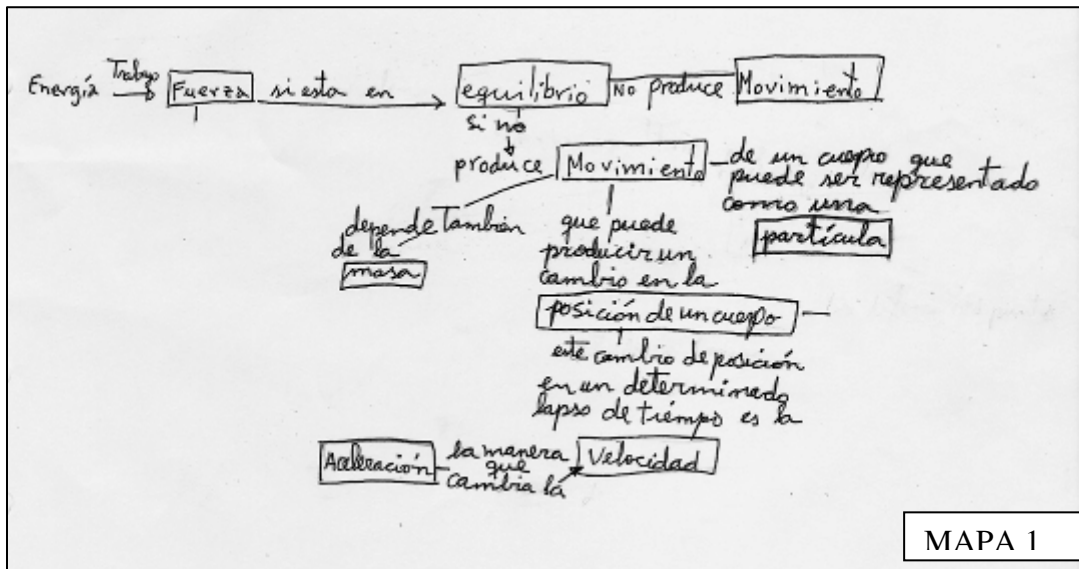 Energía Trabajo Fuerza si esta en equilibrio No produce Movimiento
si no
produce Movimiento de un cuerpo que
puede ser representado
como una
partícula
depende También
de la
masa
que puede
producir un
cambio en la
posición de un cuerpo
este cambio de posición
en un determinado
lapso de tiempo es la
Aceleración la manera
que
cambia la Velocidad
MAPA 1